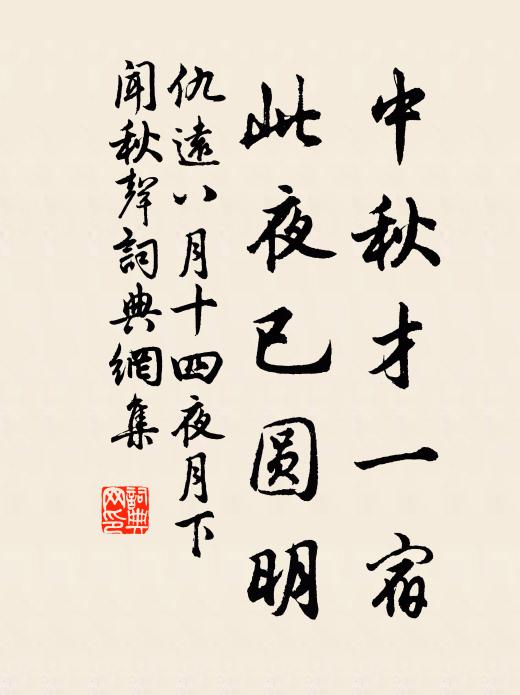 中秋才一宿
此夜已圆明
仇遠八月十四夜月下
闻秋聲詞典網集
詞典网印